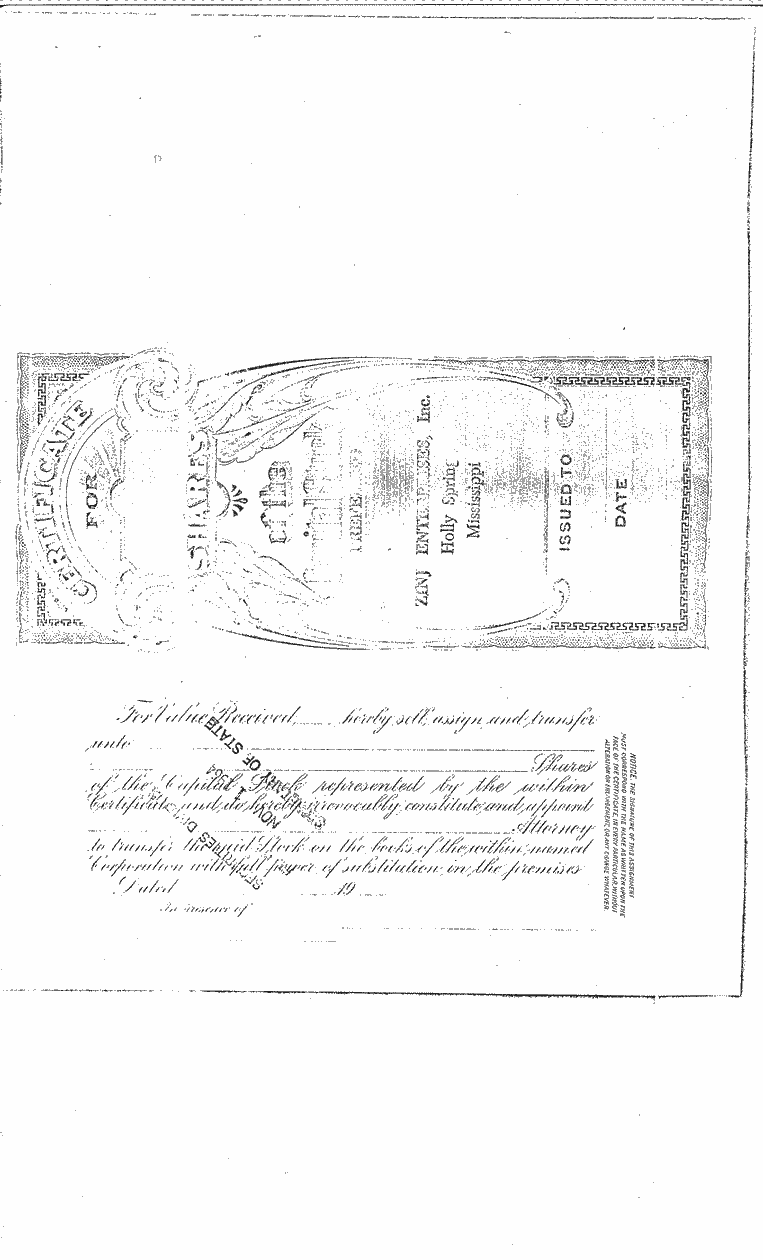 CERTIFICATE
FOR
SHARES
OF THE
Capital Stock
ZINJ ENTERPRISES, Inc.
Holly Spring
Mississippi
ISSUED TO
DATE
For Value Received, hereby sell, assign and transfer
unto
Shares
of the Capital Stock represented by the within
Certificate, and do hereby irrevocably constitute and appoint
Attorney
to transfer the said Stock on the books of the within named
Corporation with full power of substitution in the premises
Dated 19
In presence of
NOTICE. THE SIGNATURE OF THIS ASSIGNMENT
MUST CORRESPOND WITH THE NAME AS WRITTEN UPON THE
FACE OF THE CERTIFICATE, IN EVERY PARTICULAR, WITHOUT
ALTERATION OR ENLARGEMENT, OR ANY CHANGE WHATEVER.
OF STATE
1964
SECURITIES